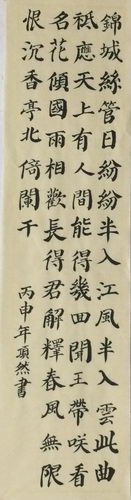 錦城絲管日紛紛半入江風半入雲此曲
祇應天上有人間能得幾回聞王帶咲看
名花傾國雨相歡長得君解釋春風無限
恨沉香亭北倚闌干
丙申年項然書